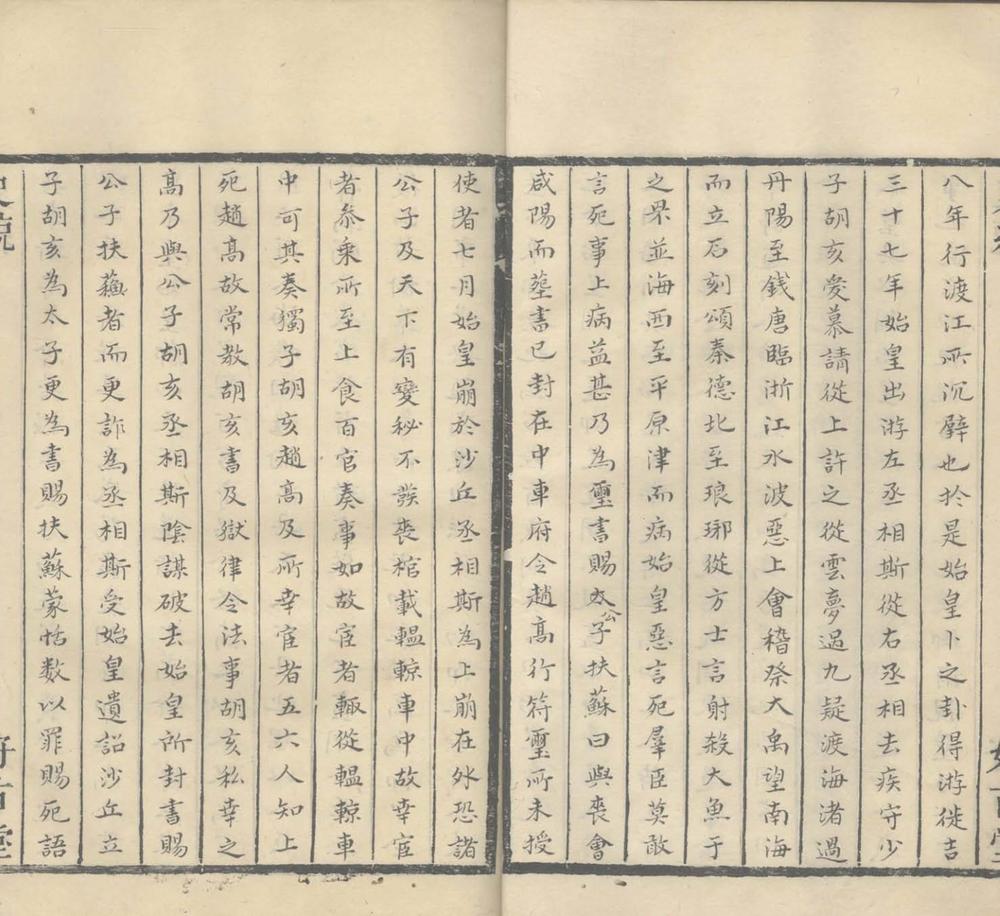 八年行渡江所沉璧也於是始皇卜之卦得游徙吉
三十七年始皇出游左丞相斯從右丞相去疾守少
子胡亥愛慕請從上許之從雲夢過九疑渡海渚過
丹陽至錢唐臨浙江水波惡上會稽祭大禹望南海
而立石刻頌秦德北至琅琊從方士言射殺大魚于
之罘並海西至平原津而病始皇惡言死羣臣莫敢
言死事上病益甚乃為璽書賜太公子扶蘇曰與喪會
咸陽而塟書已封在中車府令趙高行符璽所未授
使者七月始皇崩於沙丘丞相斯為上崩在外恐諸
公子及天下有變秘不發喪棺載轀輬車中故幸宦
者叅乘所至上食百官奏事如故宦者輙從轀輬車
中可其奏獨子胡亥趙高及所幸宦者五六人知上
死趙高故常教胡亥書及獄律令法事胡亥私幸之
高乃與公子胡亥丞相斯陰謀破去始皇所封書賜
公子扶蘓者而更詐為丞相斯受始皇遺詔沙丘立
子胡亥為太子更為書賜扶蘇蒙恬数以罪賜死語